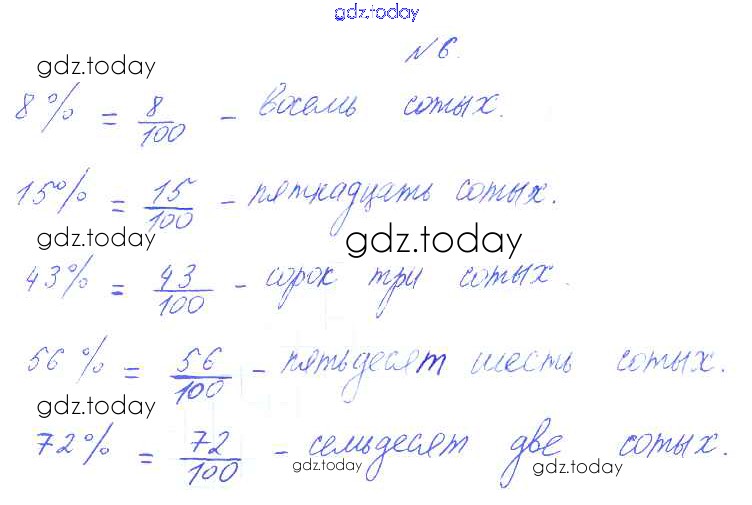 gdz.today
№ 6.
gdz.today
8% = 8/100 - восемь сотых.
15% = 15/100 - пятнадцать сотых.
gdz.today gdz.today
43% = 43/100 - сорок три сотых.
56% = 56/100 - пятьдесят шесть сотых.
gdz.today
72% = 72/100 - семьдесят две сотых.
gdz.today gdz.today